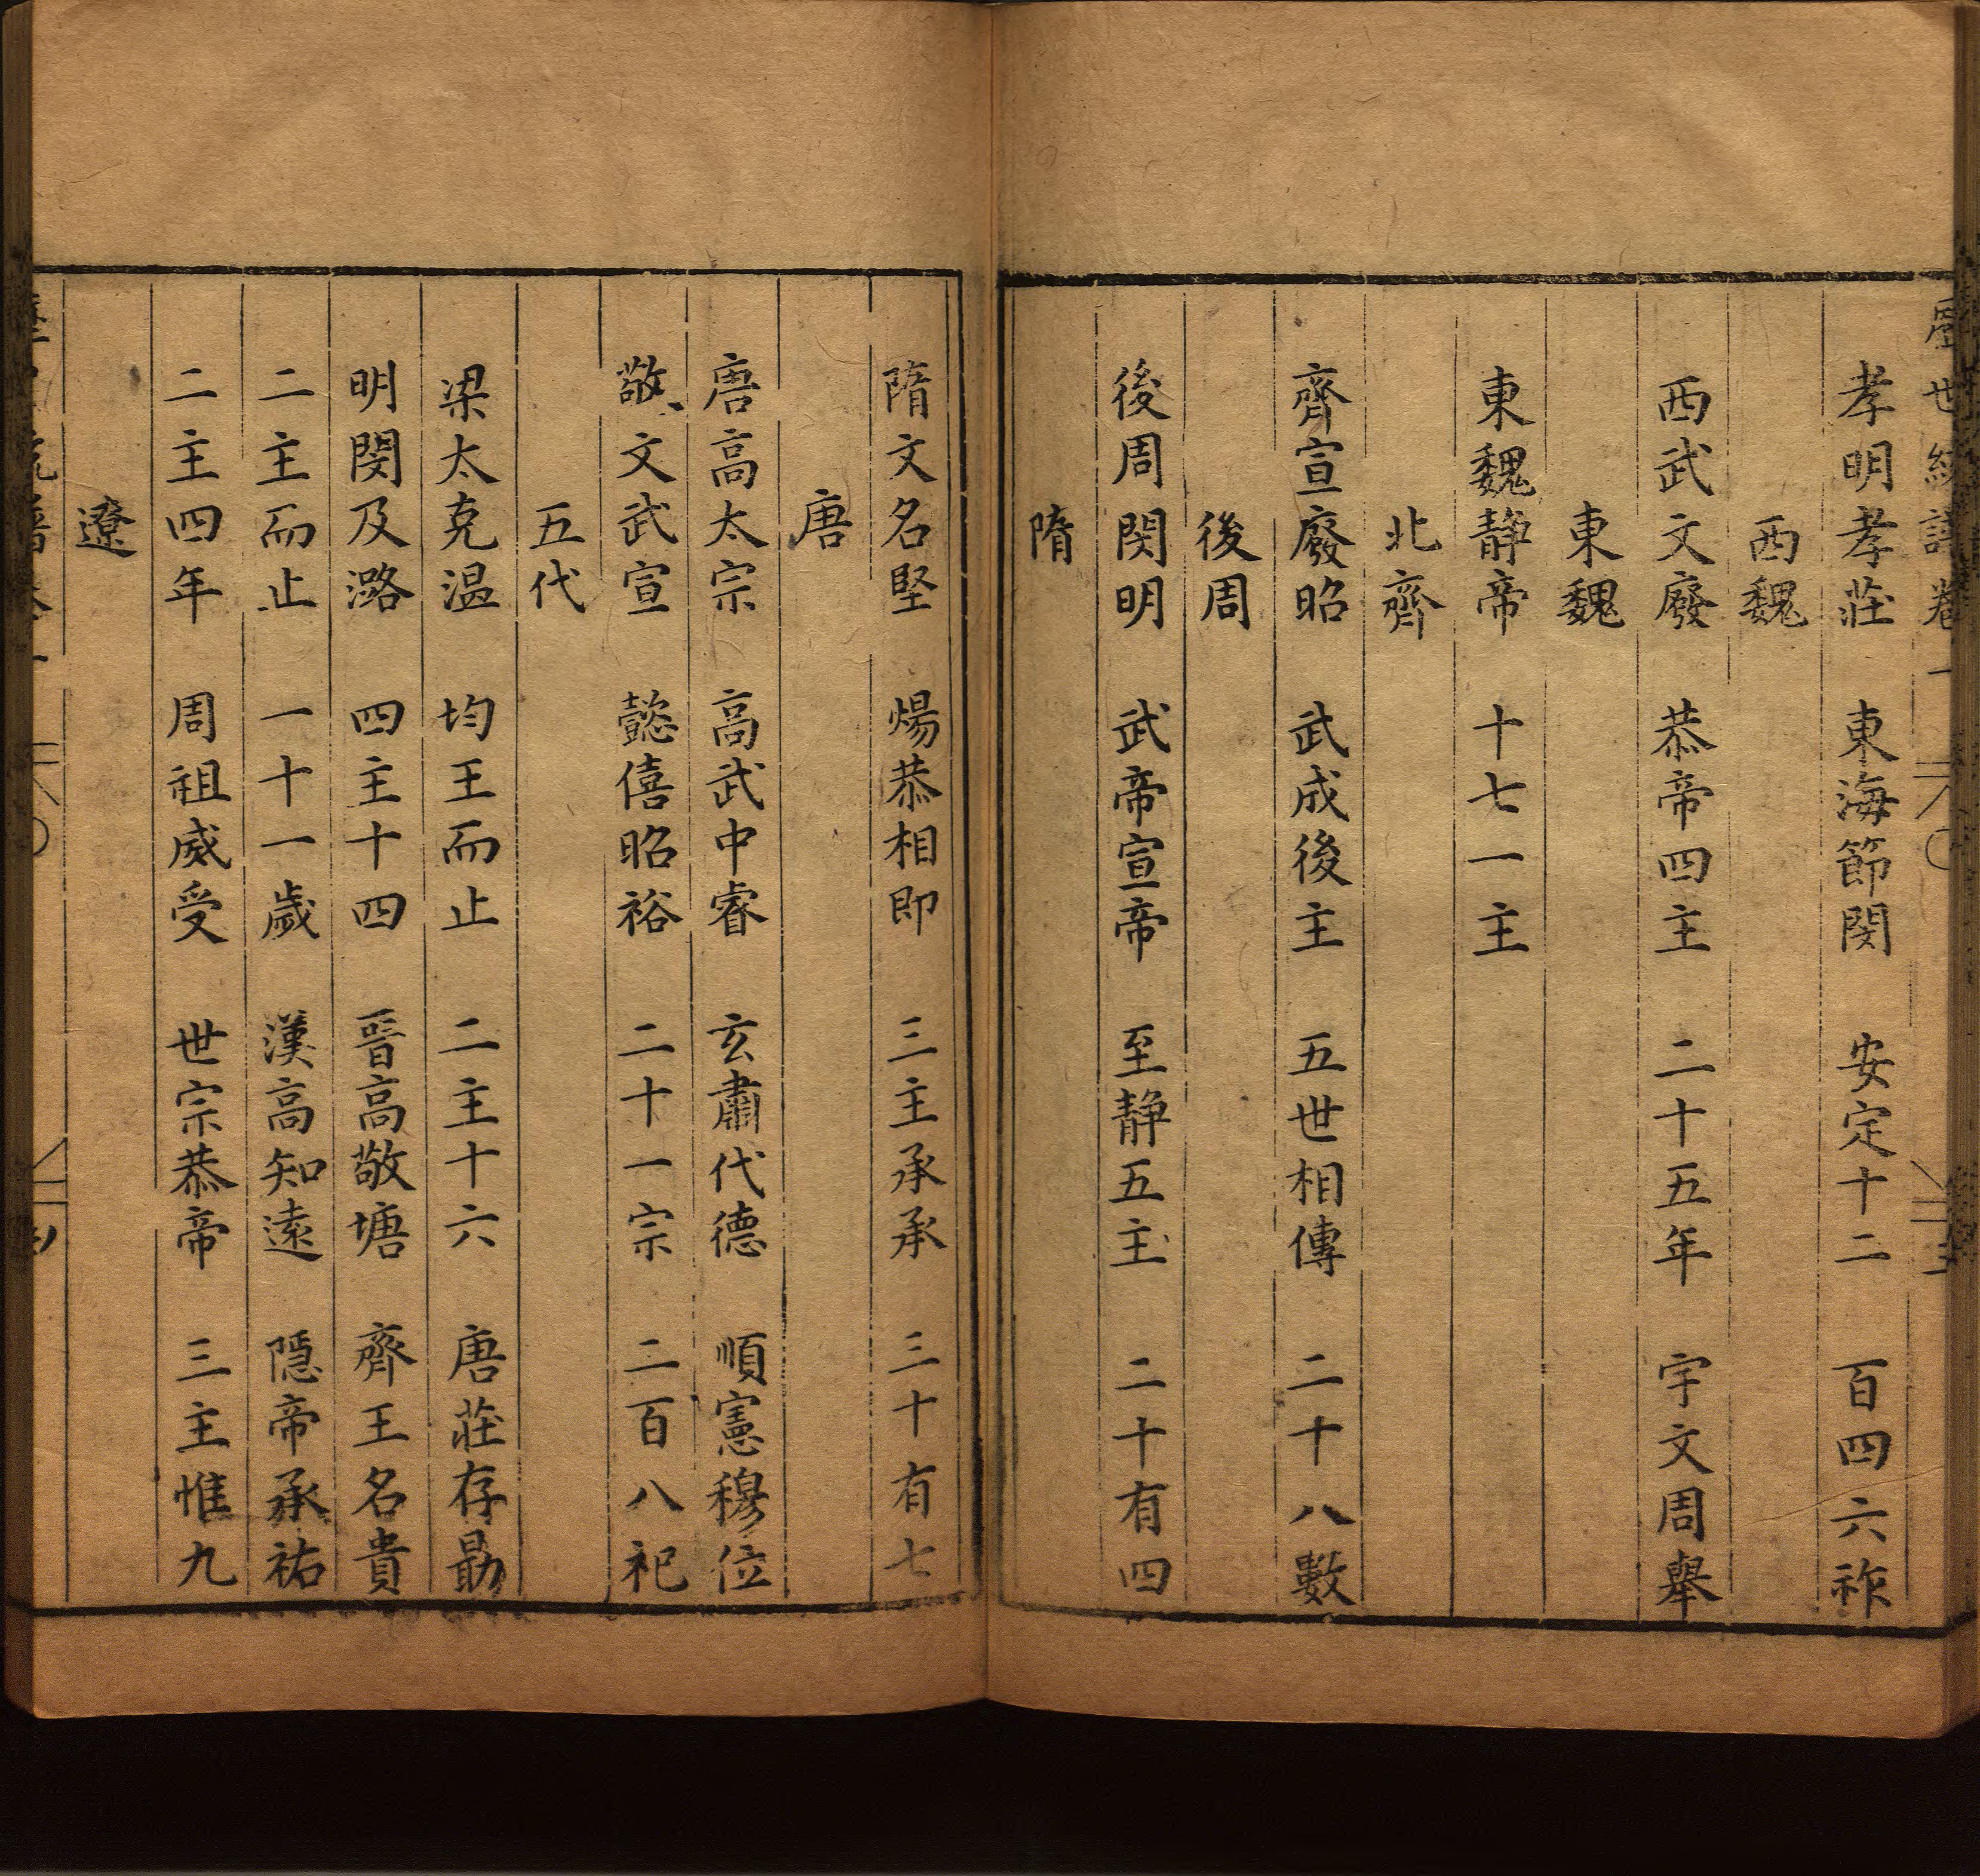 孝明孝莊　東海節閔　安定十二　百四六祚
西魏
西武文廢　恭帝四主　二十五年　宇文周舉
東魏
東魏靜帝　十七一主
北齊
齊宣廢昭　武成後主　五世相傳　二十八數
後周
後周閔明　武帝宣帝　至靜五主　二十有四
隋
隋文名堅　煬恭相即　三主承承　三十有七
唐
唐高太宗　高武中睿　玄肅代德　順憲穆位
敬文武宣　懿僖昭裕　二十一宗　二百八祀
五代
梁太克温　均王而止　二主十六　唐莊存勗
明閔及潞　四主十四　晉高敬塘　齊王名貴
二主而止　一十一歲　漢高知遠　隱帝承祐
二主四年　周祖威受　世宗恭帝　三主惟九
遼